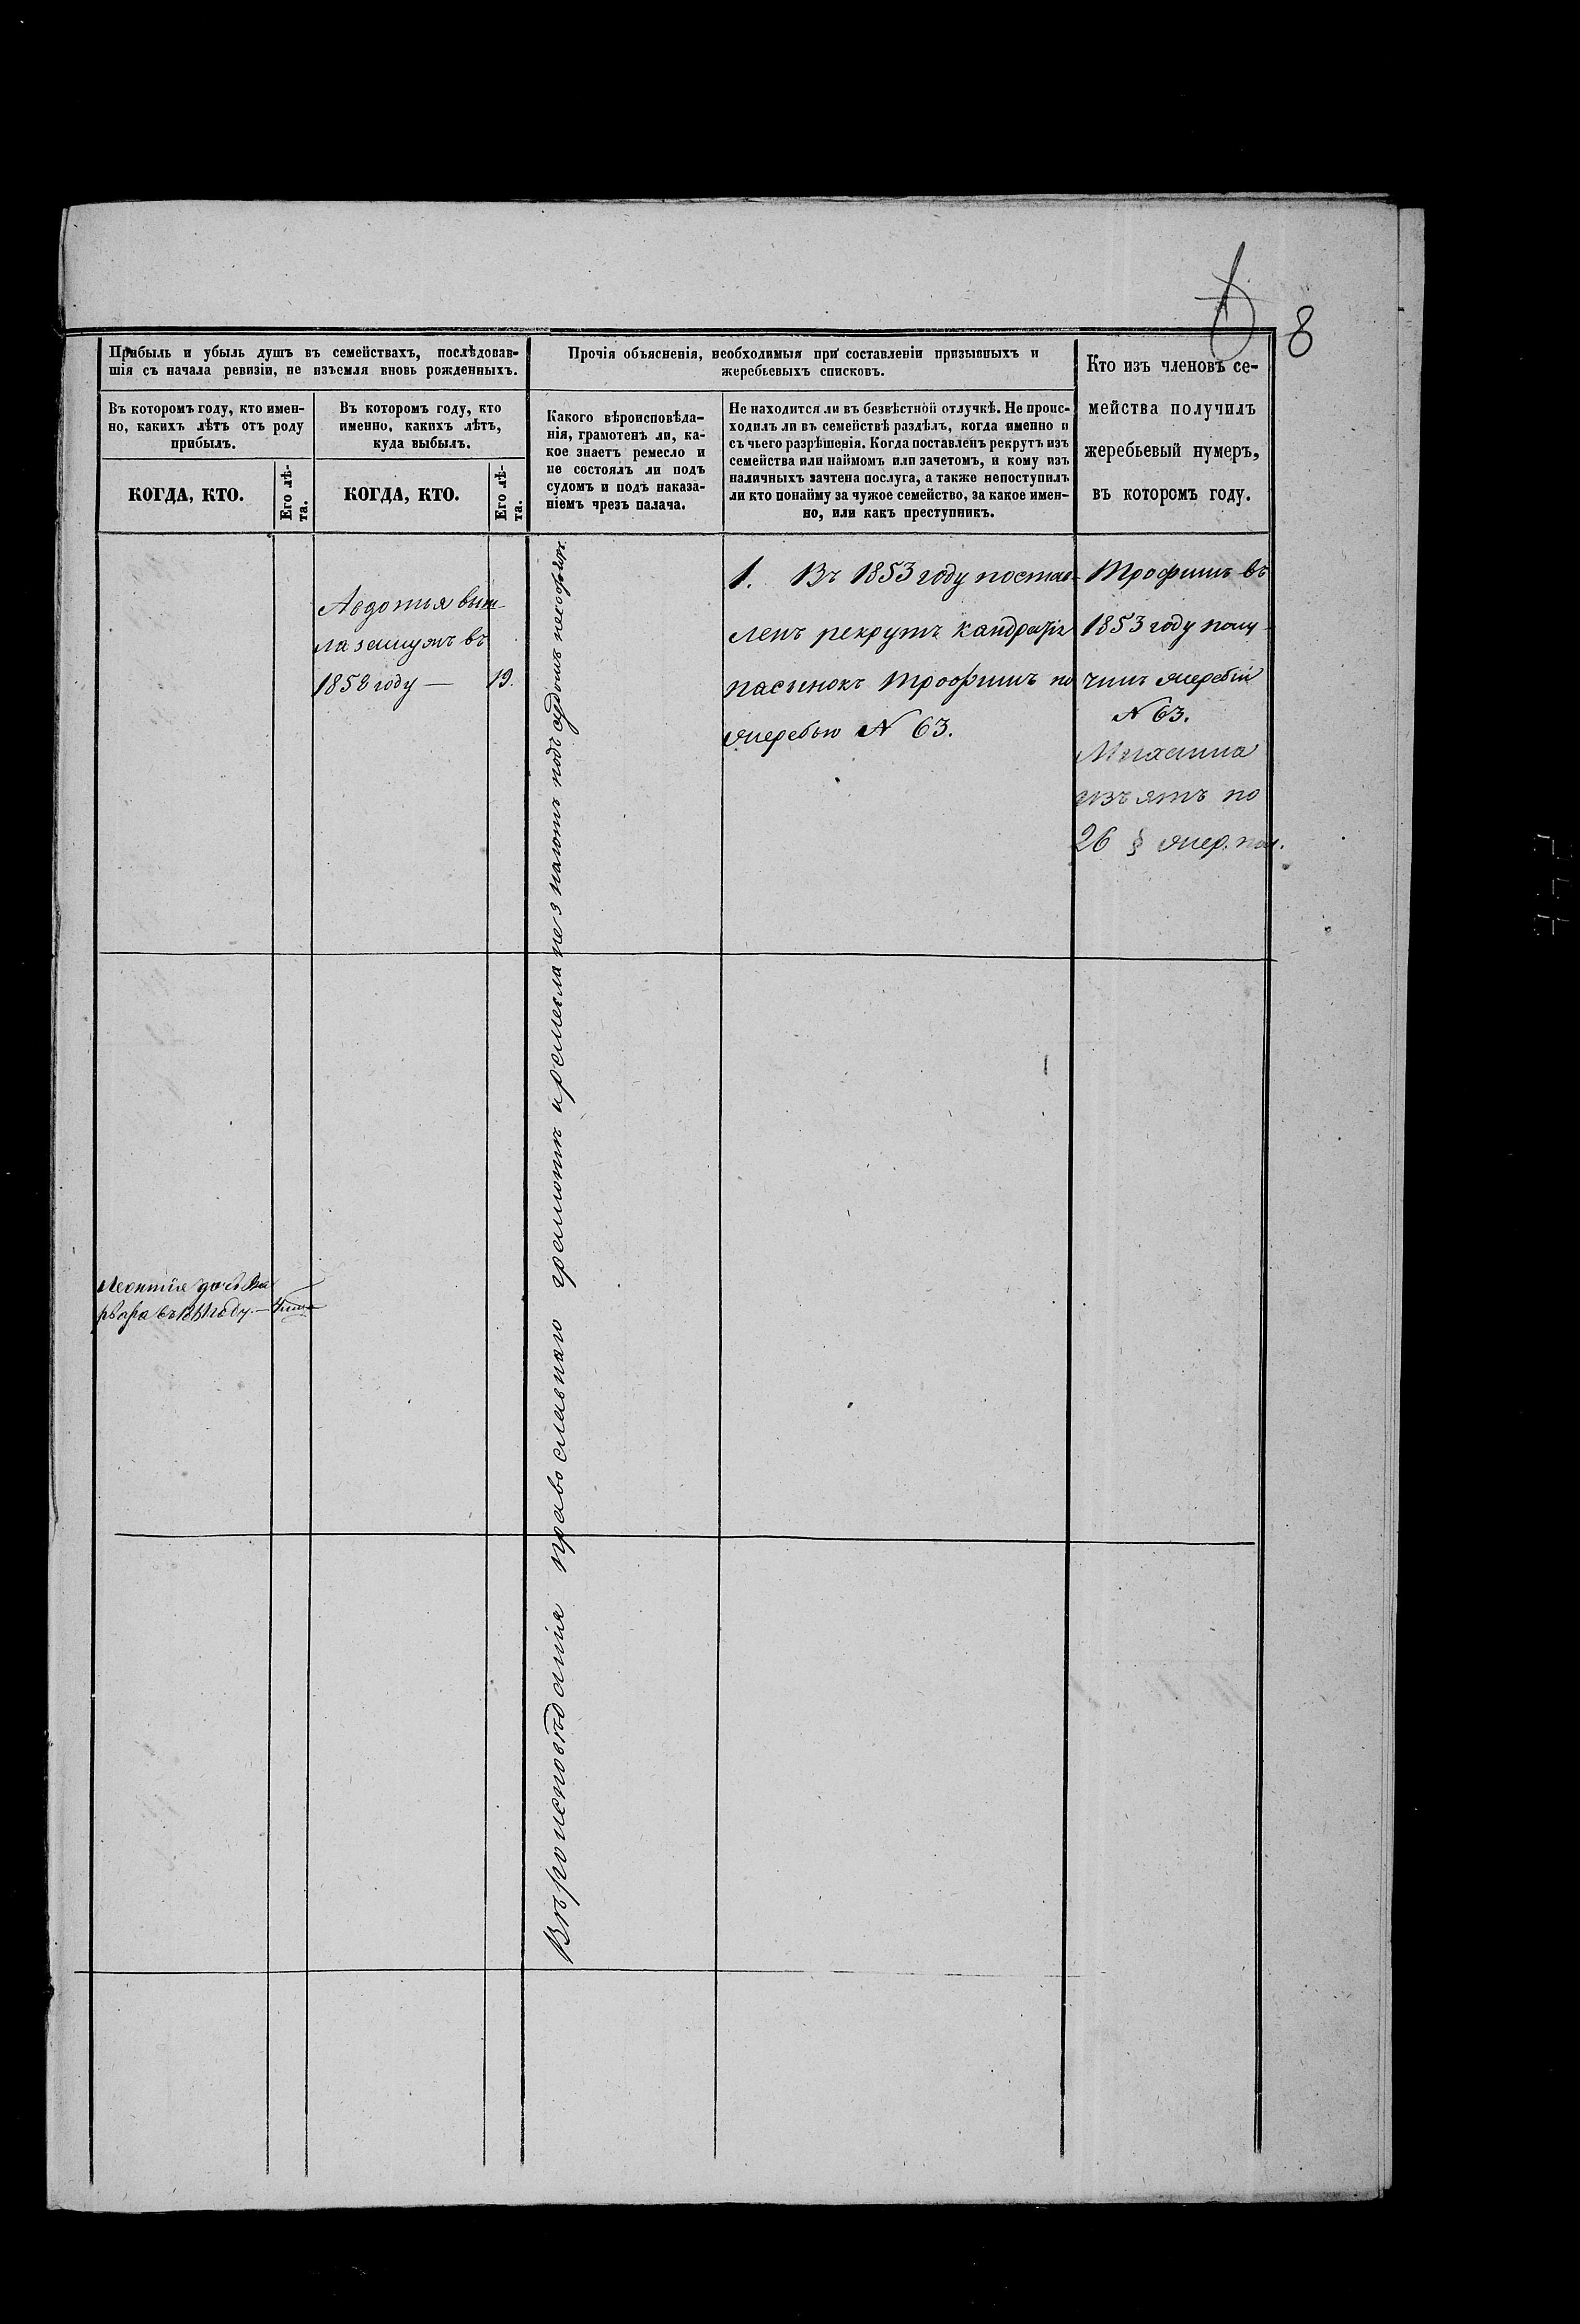 8
Прибыль и убыль душъ въ семействахъ, послѣдовав-
шія съ начала ревизіи, не изъемля вновь рожденныхъ.
Въ которомъ году, кто имен-
но, какихъ лѣтъ отъ роду
прибылъ.
Въ которомъ году, кто
именно, какихъ лѣтъ,
куда выбылъ.
КОГДА, КТО.
Его лѣ-
та.
КОГДА, КТО.
Его лѣ-
та.
Прочія объясненія, необходимыя при составленіи призывныхъ и
жеребьевыхъ списковъ.
Какого вѣроисповѣда-
нія, грамотенъ ли, ка-
кое знаетъ ремесло и
не состоялъ ли подъ
судомъ и подъ наказа-
ніемъ чрезъ палача.
Не находится ли въ безвѣстной отлучкѣ. Не проис-
ходилъ ли въ семействѣ раздѣлъ, когда именно и
съ чьего разрѣшенія. Когда поставленъ рекрутъ изъ
семейства или наймомъ или зачетомъ, и кому изъ
наличныхъ зачтена послуга, а также непоступилъ
ли кто понайму за чужое семейство, за какое имен-
но, или какъ преступникъ.
Кто изъ членовъ се-
мейства получилъ
жеребьевый нумеръ,
въ которомъ году.
Авдотья выш-
ла замужъ въ
1853 году — 19.
Вѣроисповѣданія православнаго грамотѣ и ремесла не знаютъ подъ судомъ
1. Въ 1853 году постав-
ленъ рекрутъ
пасынокъ Трофимъ по
жеребью N 63.
Трофимъ въ
1853 году полу-
чилъ жеребій
N 63.
изъятъ по
26 § жер. пол.
Леонтія дочь Ва
рвара въ году. —